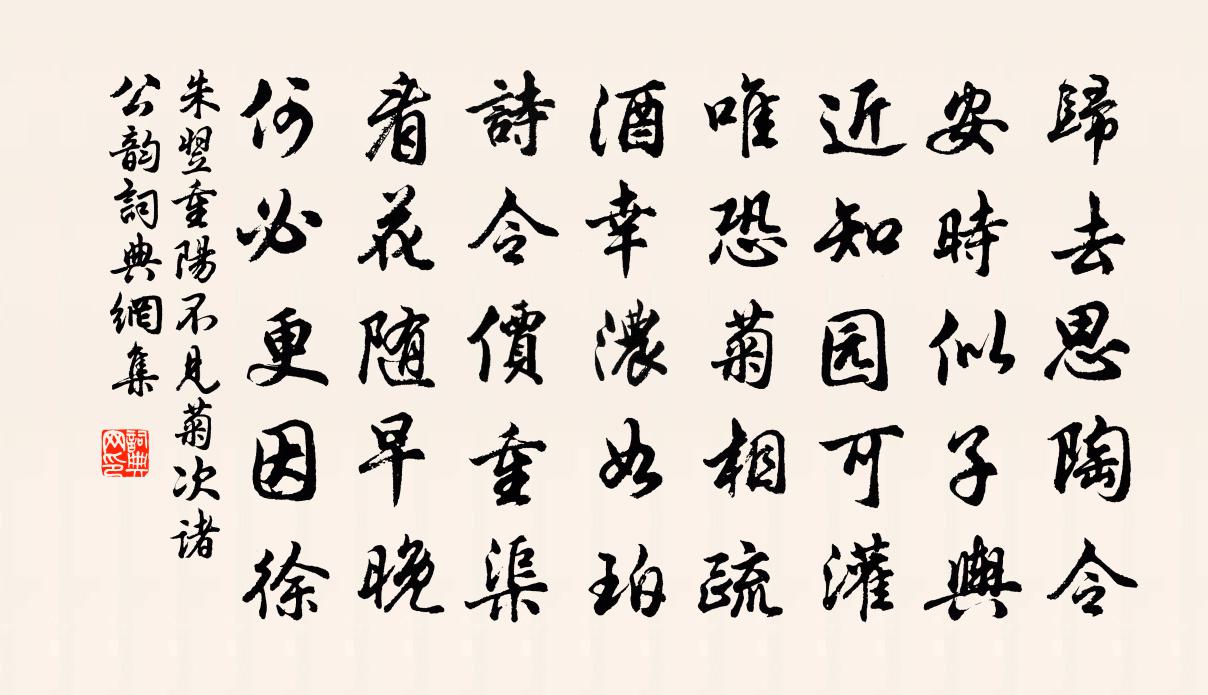 歸去思陶令
安時似子輿
近知园可灌
唯恐菊相疏
酒幸濃如珀
詩令價重渠
看花随早晚
何必更因徐
朱翌重陽不見菊次諸
公韵詞典網集
詞典
网印